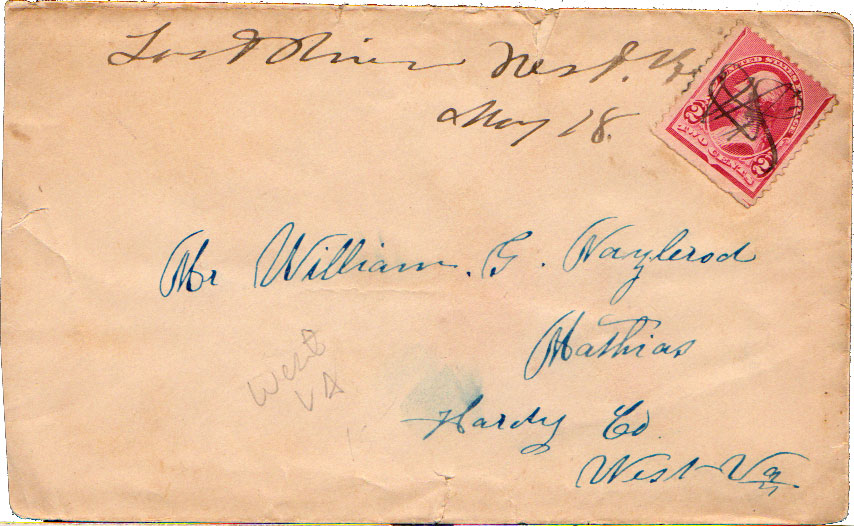 Lost River West. Va
May 18.
UNITED STATES
2
TWO CENTS
2
Mr William. G. Naylerod
Mathias
Hardy Co
West Va.
West
VA